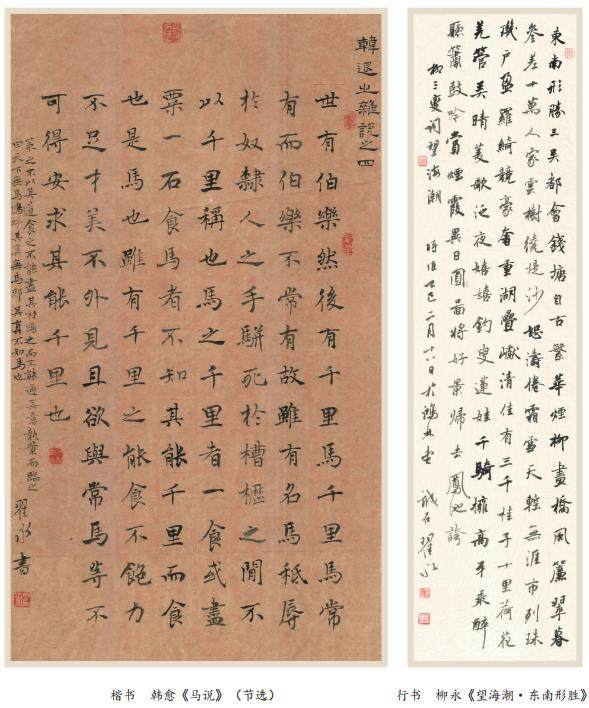 韓退之雜說之四
世有伯樂然後有千里馬千里馬常
有而伯樂不常有故雖有名馬秖辱
於奴隸人之手駢死於槽櫪之間不
以千里稱也馬之千里者一食或盡
粟一石食馬者不知其能千里而食
也是馬也雖有千里之能食不飽力
不足才美不外見且欲與常馬等不
可得安求其能千里也
策之不以其道食之不能盡其材鳴之而不能通其意執策而臨之
曰天下無馬嗚呼其真無馬邪其真不知馬也
翟永書
東南形勝三吳都會錢塘自古繁華煙柳畫橋風簾翠暮
參差十萬人家雲樹繞堤沙怒濤捲霜雪天塹無涯市列珠
璣戶盈羅綺競豪奢重湖疊巘清佳有三千桂子十里荷花
羌管弄晴菱歌泛夜嬉嬉釣叟蓮娃千騎擁高牙乘醉
聽簫鼓吟賞煙霞異日圖將好景歸去鳳池誇
柳三變詞望海潮 時惟乙巳二月十六日於 翟永
楷书 韩愈《马说》（节选）
行书 柳永《望海潮·东南形胜》